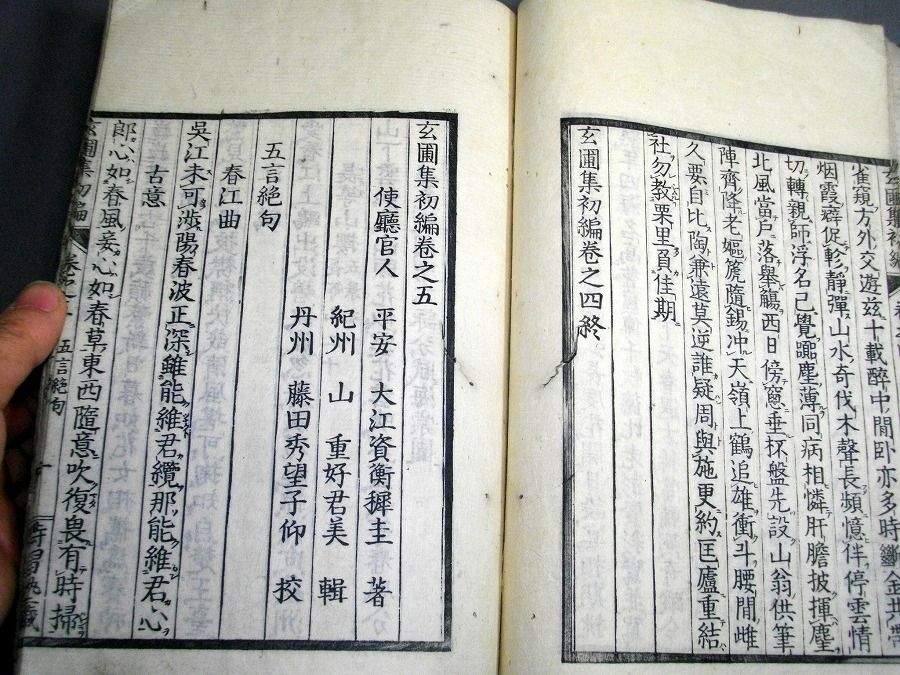 雀窺方外交遊茲十載醉中間臥亦多時斷金共
烟霞癖促軫靜彈山水奇伐木聲長頻憶伴停雲情
切轉親師浮名已覺躢塵薄同病相憐肝膽披揮塵
北風當戶落舉觴西日傍窓垂杯盤先設山翁供筆
陣齊降老嫗箎隨錫冲天嶺上鶴追雄衝斗腰間雌
久要自比陶兼遠莫逆誰疑周與施更約匡廬重結
社勿教栗里負佳期
玄圃集初編卷之四終
玄圃集初編卷之五
使廳官人 平安 大江資衡穉圭 著
紀州 山 重好君美 輯
丹州 藤田秀望子仰 校
五言絕句
春江曲
吳江未可涉陽春波正深雖能維君纜那能維君心
古意
郎心如春風妾心如春草東西隨意吹復畏有時掃
玄圃集初編
五言絕句